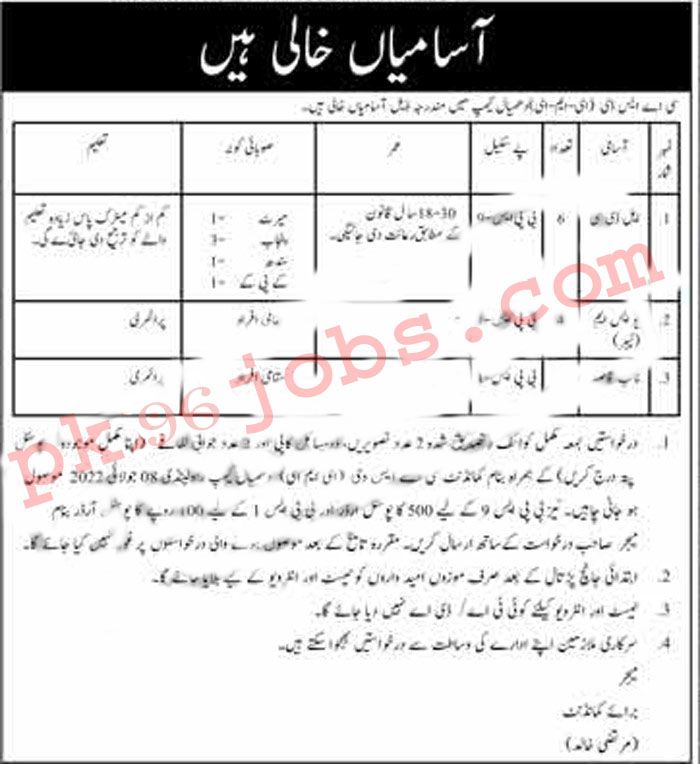 آسامیاں خالی ہیں
سی اے ایس ڈی (ای-ایم-ای) دھمیال کیمپ میں مندرجہ ذیل آسامیاں خالی ہیں۔
نمبر شمار آسامی تعداد پے سکیل عمر صوبائی کوٹہ تعلیم
1. ایل ڈی سی 6 بی پی ایس-9 18-30 سال قانون کے مطابق رعائت دی جائیگی۔ میرٹ -1 پنجاب -3 سندھ -1 کے پی کے -1 کم از کم میٹرک پاس زیادہ تعلیم والے کو ترجیح دی جائے گی۔
2. یو ایس ایم (لیبر) 4 بی پی ایس-1 مقامی افراد پرائمری
3. نائب قاصد بی پی ایس-1 مقامی افراد پرائمری
pk96jobs.com
1. درخواستیں بمعہ مکمل کوائف و تصدیق شدہ 2 عدد تصویریں، موبائل کاپی اور 2 عدد جوابی لفافے (اپنا مکمل موجودہ پوسٹل
پتہ درج کریں) کے ہمراہ بنام کمانڈنٹ سی اے ایس ڈی (ای ایم ای) دھمیال کیمپ راولپنڈی 08 جولائی 2022 موصول
ہو جانی چاہیں۔ نیز بی پی ایس 9 کے لیے 500 کا پوسٹل آرڈر اور بی پی ایس 1 کے لیے 400 روپے کا پوسٹل آرڈر بنام
میجر صاحب درخواست کے ساتھ ارسال کریں۔ مقررہ تاریخ کے بعد موصول ہونے والی درخواستوں پر غور نہیں کیا جائے گا۔
2. ابتدائی جانچ پڑتال کے بعد صرف موزوں امیدواروں کو ٹیسٹ اور انٹرویو کے لیے بلایا جائے گا۔
3. ٹیسٹ اور انٹرویو کیلئے کوئی ٹی اے / ڈی اے نہیں دیا جائے گا۔
4. سرکاری ملازمین اپنے ادارے کی وساطت سے درخواستیں بھجوا سکتے ہیں۔
میجر
برائے کمانڈنٹ
(مرتضی خالد)